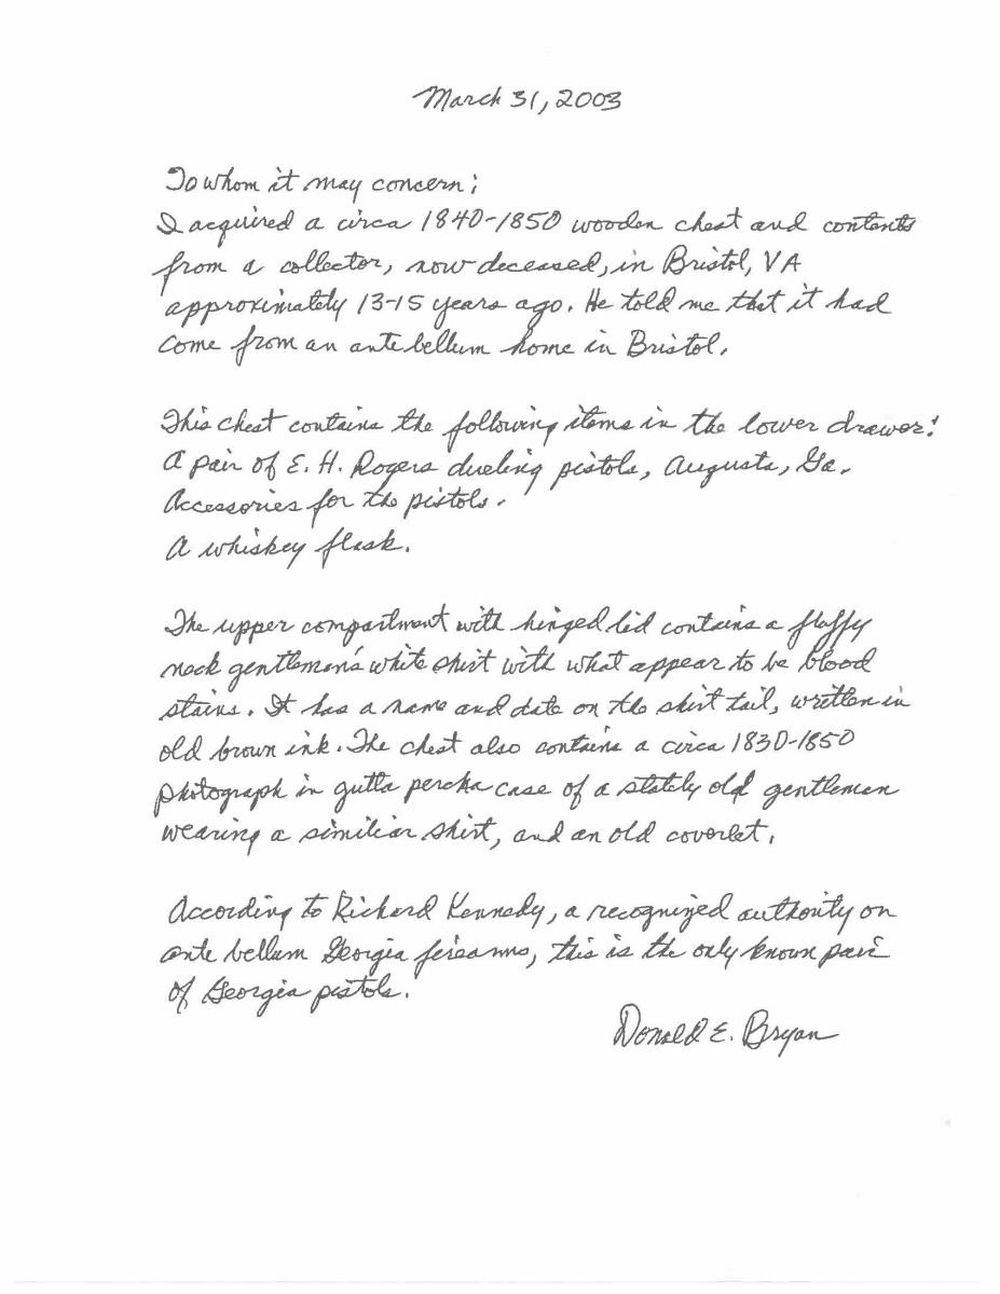 March 31, 2003
To whom it may concern;
I acquired a circa 1840-1850 wooden chest and contents
from a collector, now deceased, in Bristol, VA
approximately 13-15 years ago. He told me that it had
come from an ante bellum home in Bristol.
This chest contains the following items in the lower drawer:
A pair of E. H. Rogers dueling pistols, Augusta, Ga.
Accessories for the pistols.
A whiskey flask.
The upper compartment with hinged lid contains a fluffy
neck gentleman's white shirt with what appear to be blood
stains. It has a name and date on the shirt tail, written in
old brown ink. The chest also contains a circa 1830-1850
photograph in gutta percha case of a stately old gentleman
wearing a similiar shirt, and an old coverlet.
According to Richard Kennedy, a recognized authority on
ante bellum Georgia firearms, this is the only known pair
of Georgia pistols.
Donald E. Bryan